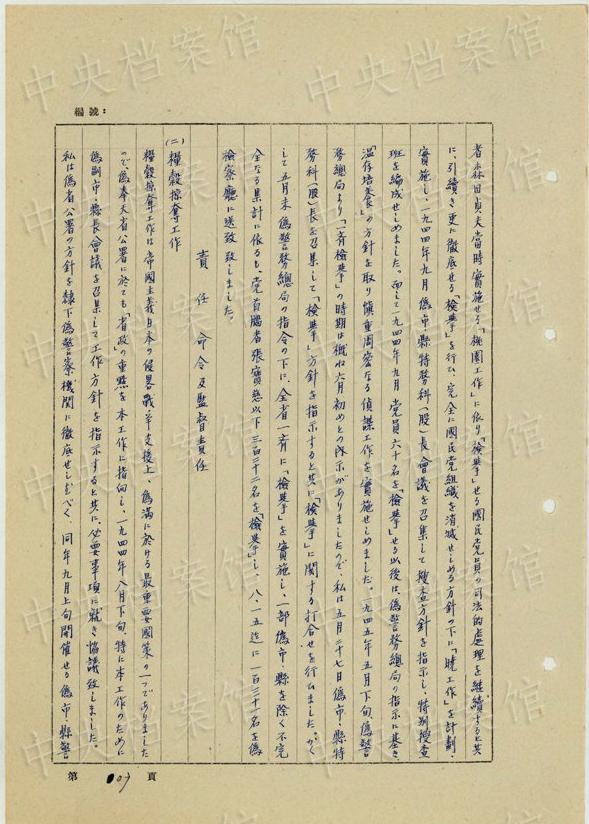 編號：
者森田貞夫當時實施せる「桃園工作」に依り「検挙」せる國民党員の司法的處理を継續すると共
に、引續き更に徹底せる「検挙」を行ひ、完全に國民党組織を消滅せしめる方針の下に「暁工作」を計劃・
實施し、一九四四年九月 偽市・縣特務科（股）長會議を召集して捜查方針を指示し、特別捜查
班を編成せしめました。而して一九四四年九月 党員六十名を「検挙」せる以後は、偽警務總局の指示に基き
「温存培養」の方針を取り慎重周密なる偵諜工作を實施せしめました。一九四五年五月下旬、偽警
務總局より「一斉検挙」の時期は概ね六月初めとの隊示がありましたので、私は五月二十七日 偽市・縣特
務科（股）長を召集して「検挙」方針を指示すると共に「検挙」に関する打合せを行ひました。かく
して五月末 偽警務總局の指令の下に、全省一斉に「検挙」を實施し、一部偽市・縣を除く不完
全なる集計に依るも、党首腦者 張寶慈以下三百二十二名を「検挙」し、八・一五迄に一百三十一名を偽
檢察廳に送致致しました。
責任 命令及監督責任
（二）糧穀掠奪工作
糧穀掠奪工作は帝國主義日本の侵畧戰爭支援上、偽滿に於ける最重要國策の一つでありました
ので偽奉天省公署に於ても「省政」の重點を本工作に指向し、一九四四年八月下旬、特に本工作のために
偽副市・縣長會議を召集して工作方針を指示すると共に、必要事項に就き協議致しました。
私は偽省公署の方針を隷下偽警察機関に徹底せしむべく、同年九月上旬開催せる偽市・縣警
第 107 頁
中央档案馆